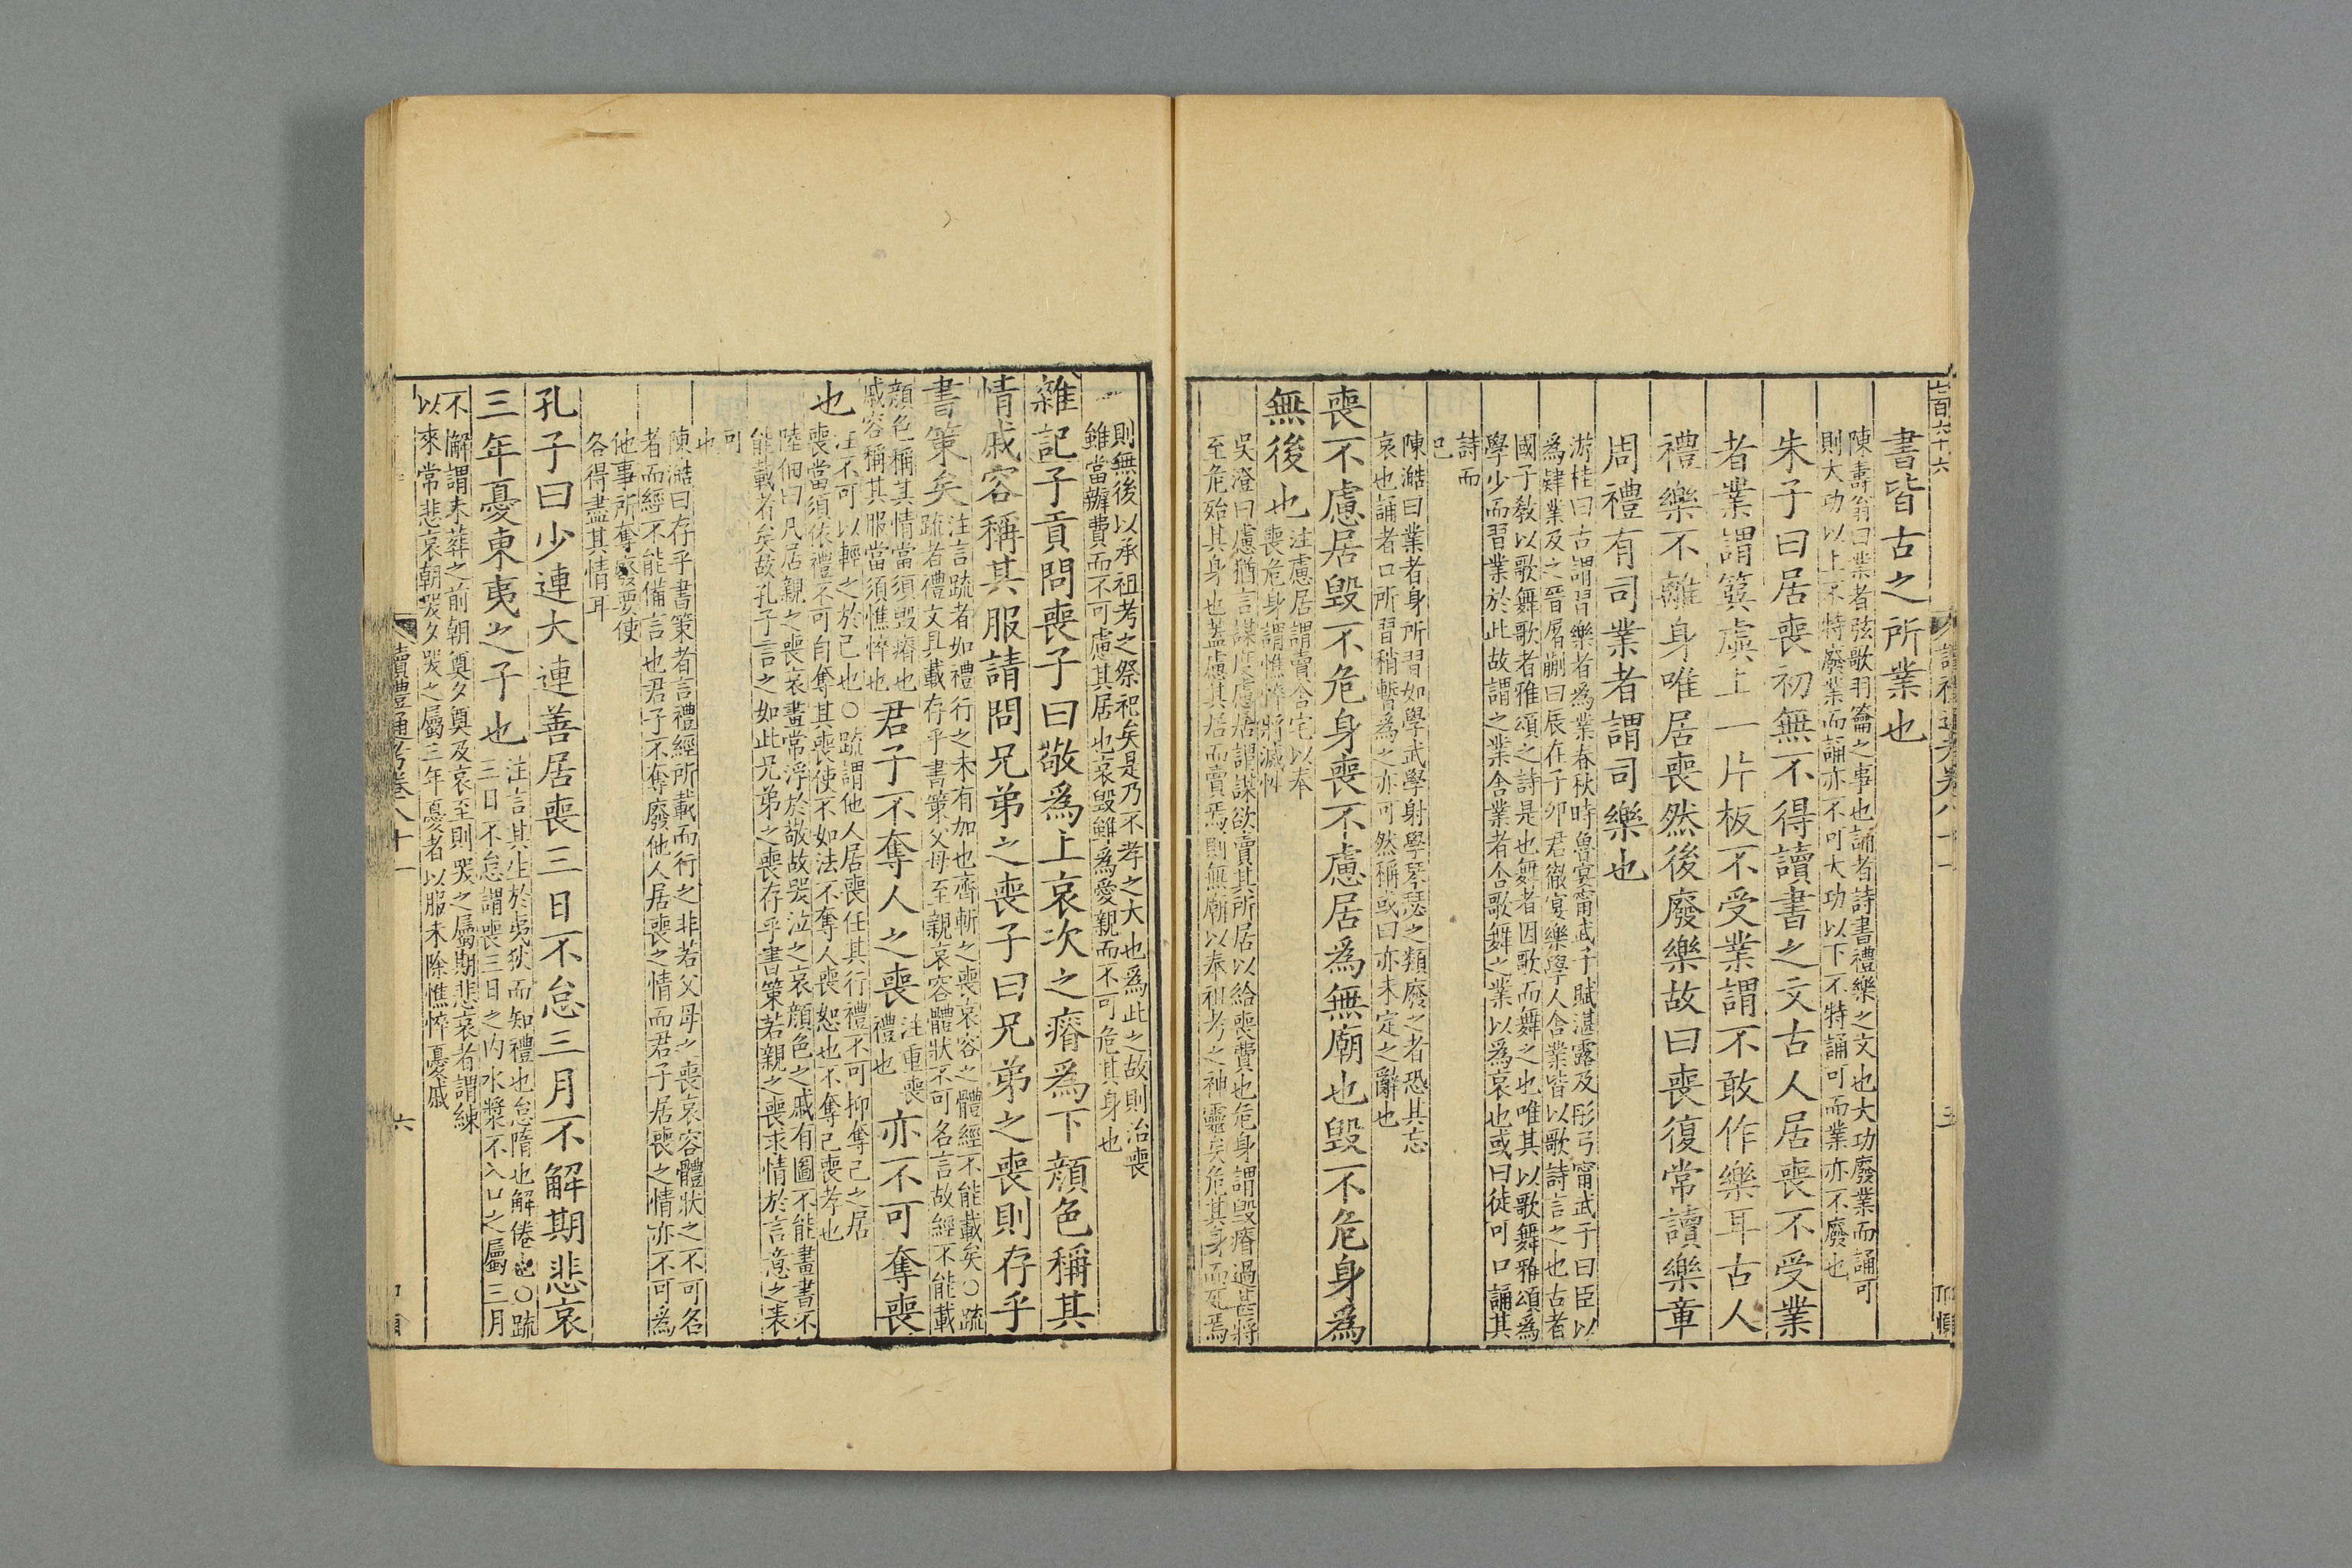 書皆古之所業也
陳壽翁曰業者弦歌羽籥之事也誦者詩書禮樂之文也大功廢業而誦可
則大功以上不特廢業而誦亦不可大功以下不特誦可而業亦不廢也
朱子曰居喪初無不得讀書之文古人居喪不受業
者業謂簨虡上一片板不受業謂不敢作樂耳古人
禮樂不離身唯居喪然後廢樂故曰喪復常讀樂章
周禮有司業者謂司樂也
游桂曰古謂習樂者為業春秋時魯宴甯武子賦湛露及彤弓甯武子曰臣以
為肄業及之晉屠蒯曰辰在子卯君徹宴樂學人舍業皆以歌詩言之也古者
國子教以歌舞歌者雅頌之詩是也舞者因歌而舞之也唯其以歌舞雅頌為
學少而習業於此故謂之業舍業者舍歌舞之業以為哀也或曰徒可口誦其
詩而
已
陳澔曰業者身所習如學武學射學琴瑟之類廢之者恐其忘
哀也誦者口所習稍暫為之亦可然稱或曰亦未定之辭也
喪不慮居毀不危身喪不慮居為無廟也毀不危身為
無後也
注慮居謂賣舍宅以奉
喪危身謂憔悴將滅性
吳澄曰慮猶言謀度慮居謂謀欲賣其所居以給喪費也危身謂毀瘠過甚將
至危殆其身也蓋慮其居而賣焉則無廟以奉祖考之神靈矣危其身而死焉
則無後以承祖考之祭祀矣是乃不孝之大也為此之故則治喪
雖當辦費而不可慮其居也哀毀雖為愛親而不可危其身也
雜記子貢問喪子曰敬為上哀次之瘠為下顏色稱其
情戚容稱其服請問兄弟之喪子曰兄弟之喪則存乎
書策矣
注言疏者如禮行之未有加也齊斬之喪哀容之體經不能載矣○疏
疏者禮文具載存乎書策父母至親哀容體狀不可名言故經不能載
顏色稱其情當須毀瘠也
戚容稱其服當須憔悴也
君子不奪人之喪
注重喪
禮也
亦不可奪喪
也
注不可以輕之於己也○疏謂他人居喪任其行禮不可抑奪己之居
喪當須依禮不可自奪其喪使不如法不奪人喪恕也不奪己喪孝也
陸佃曰凡居親之喪哀晝常浮於敬故哭泣之哀顏色之戚有圖不能畫書不
能載者矣故孔子言之如此兄弟之喪存乎書策若親之喪求情於言意之表
可
也
陳澔曰存乎書策者言禮經所載而行之非若父母之喪哀容體狀之不可名
者而經不能備言也君子不奪廢他人居喪之情而君子居喪之情亦不可為
他事所奪廢要使
各得盡其情耳
孔子曰少連大連善居喪三日不怠三月不解期悲哀
三年憂東夷之子也
注言其生於夷狄而知禮也怠隋也解倦也○疏
三日不怠謂喪三日之內水漿不入口之屬三月
不懈謂未葬之前朝奠夕奠及哀至則哭之屬期悲哀者謂練
以來常悲哀朝哭夕哭之屬三年憂者以服未除憔悴憂戚
讀禮通考卷八十一
六